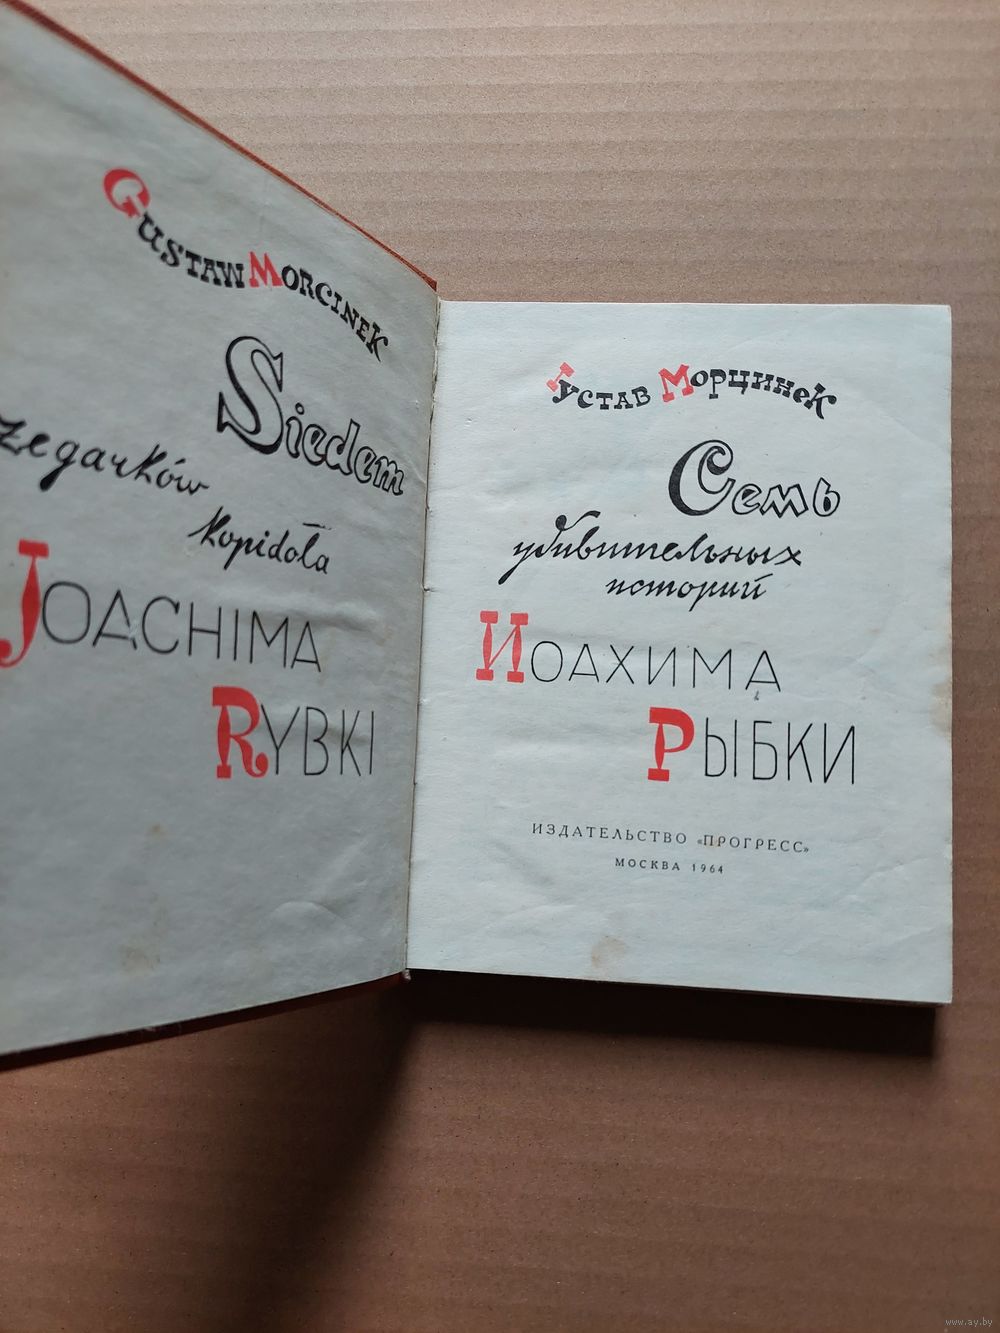 GUSTAW MORCINEK
Siedem
zegarków
kopidoła
JOACHIMA
RYBKI
Густав Морцинек
Семь
удивительных
историй
ИОАХИМА
РЫБКИ
ИЗДАТЕЛЬСТВО «ПРОГРЕСС»
МОСКВА 1964
www.ay.by